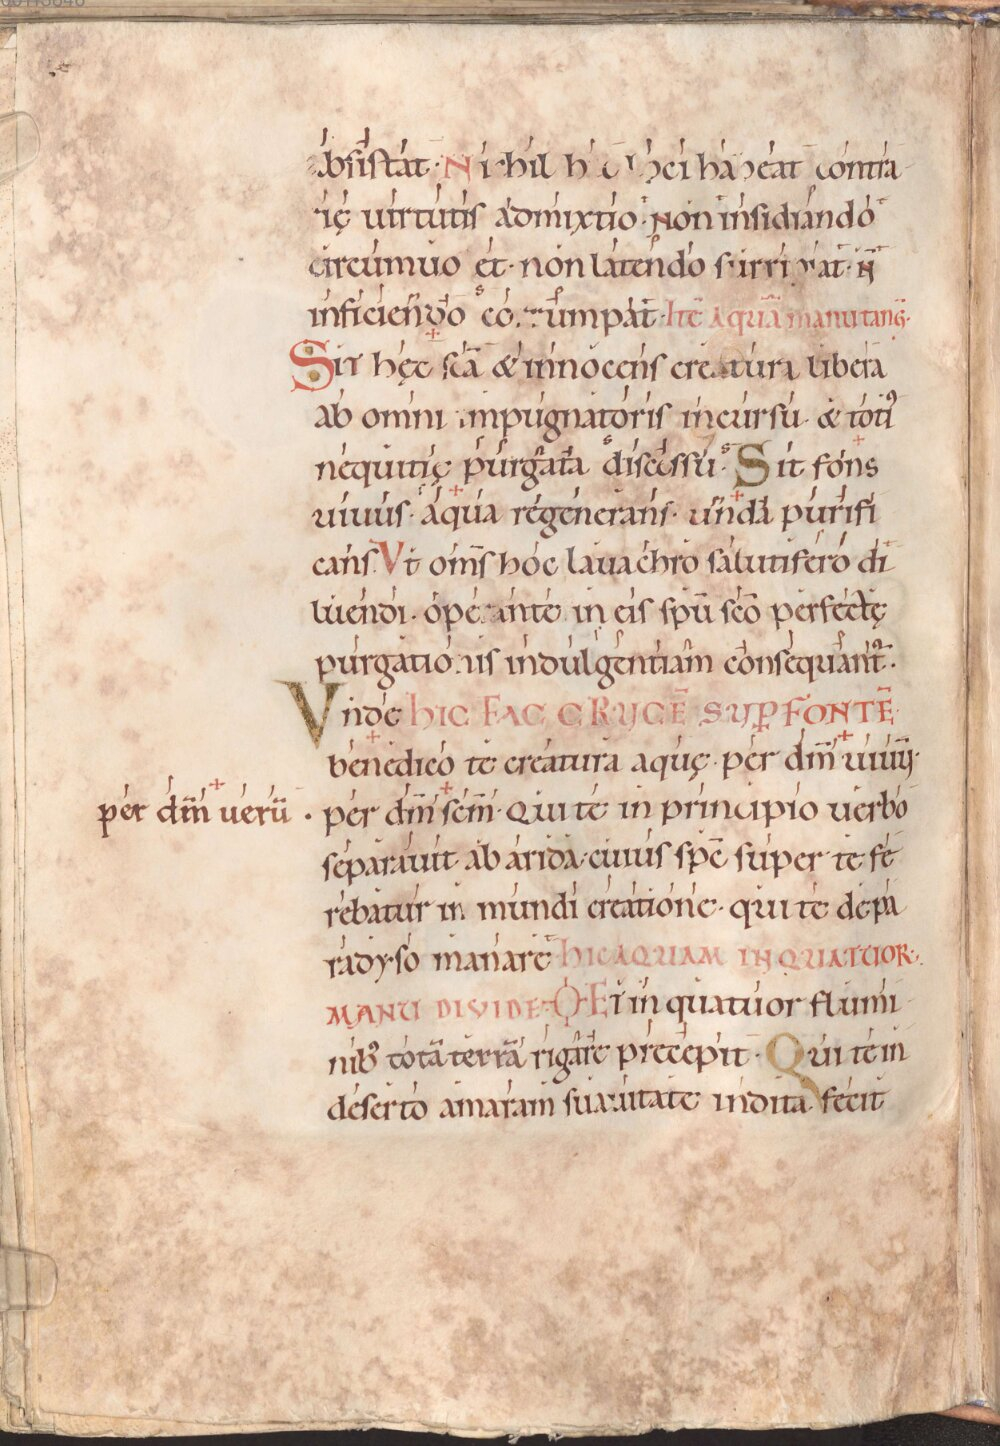 absistat. Nihil hic loci habeat contra
rię uirtutis admixtio. Non insidiando
circumuo et. non latendo surripiat. n̄
inficiendo corrumpat. hic aquā manu tang̅.
Sit hęc sc̄a & innocens creatura libera
ab omni impugnatoris incursu. & toti᾽
nequitię purgata discessu. Sit fons
uiuus. aqua regenerans. unda purifi
cans. Vt om̄s hoc lauachro salutifero di
luendi. operante in eis sp̄u sc̄o perfectę
purgationis indulgentiam consequant᷑.
Vnde HIC FAC CRUCĒ SUꝑ FONTĒ
benedico te creatura aquę. per dm̄ uiuū.
per dm̄ uerū .
per dm̄ sc̄m̄. Qui te in principio uerbo
separauit ab arida. cuius sp̄c super te fe
rebatur in mundi creatione. qui te de pa
radyso manare HIC AQUAM IN QUATUOR.
MANU DIVIDE. Et in quatuor flumi
nib᾽ totā terrā rigare precepit. Qui te in
deserto amaram suauitate indita fecit